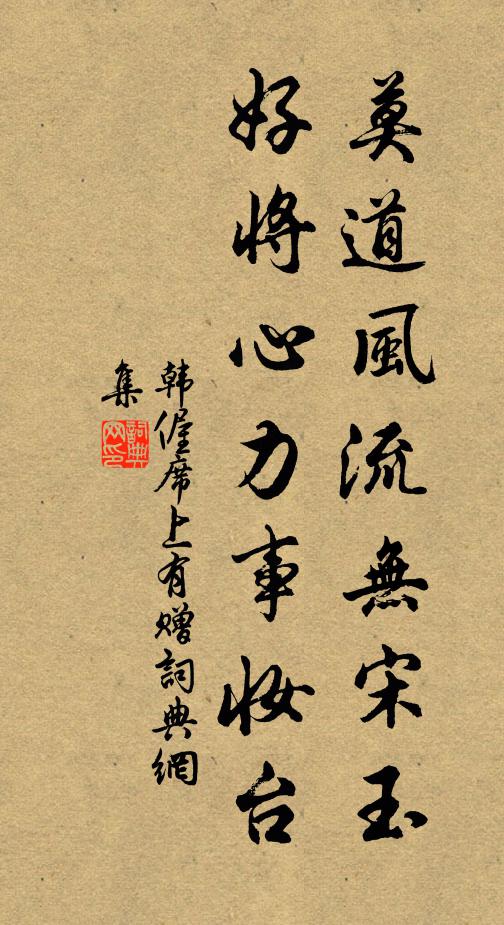 莫道風流無宋玉
好將心力事妝台
韩偓席上有赠詞典網
集
詞典
网印